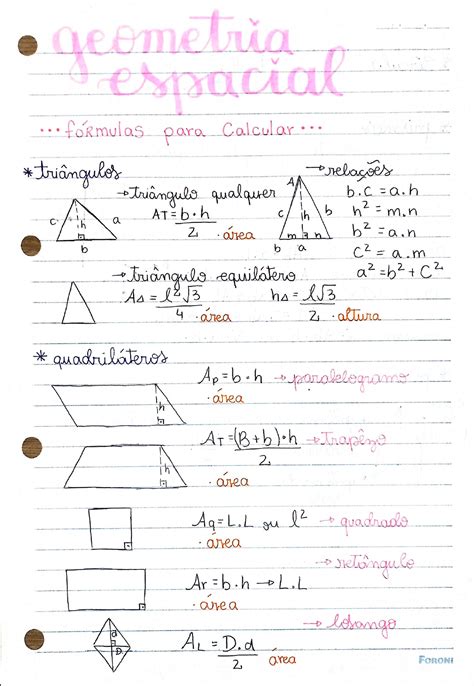 geometria
espacial
... fórmulas para Calcular ...
* triângulos
→ relações
→ triângulo qualquer
b.c = a.h
AT = b.h / 2 . área
h² = m.n
b² = a.n
c² = a.m
a² = b² + c²
c h a b
A c h b m n b a
→ triângulo equilátero
AΔ = l²√3 / 4 . área
hΔ = l√3 / 2 . altura
* quadriláteros
Ap = b.h → paralelogramo
. área
h
AT = (B+b).h / 2 → trapézio
. área
h
Aq = L.L ou l² → quadrado
. área
→ retângulo
Ar = b.h → L.L
. área
→ losango
AL = D.d / 2 área
d
D
FORONI